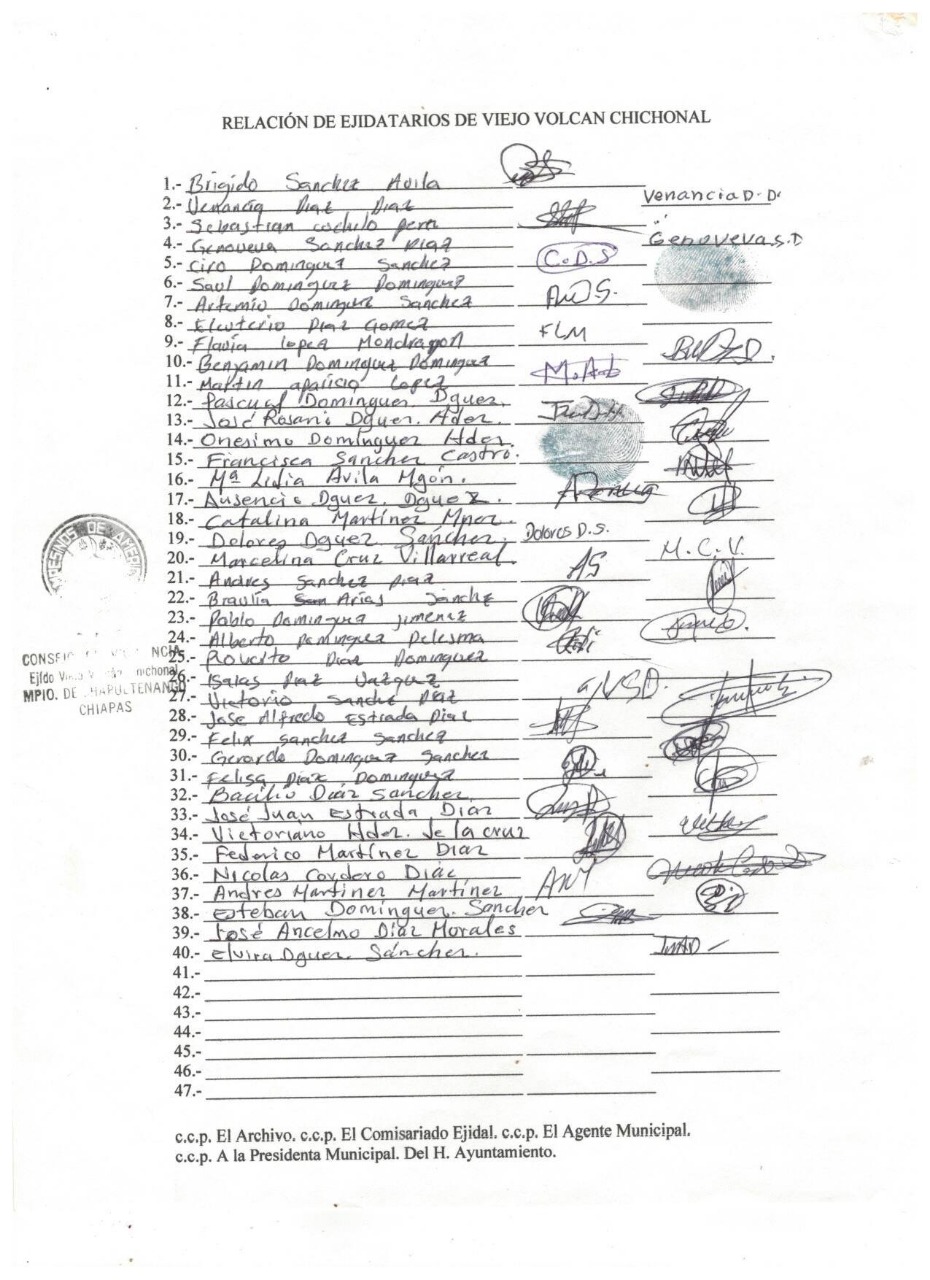 RELACIÓN DE EJIDATARIOS DE VIEJO VOLCAN CHICHONAL
1.- Brigido Sanchez Avila
2.- Venancia Diaz Diaz Venancia D. D.
3.- Sebastian cochulo pera
4.- Genoveva Sanchez Diaz Genoveva S. D
5.- Ciro Dominguez Sanchez C. D. S
6.- Saul Dominguez Dominguez
7.- Artemio Dominguez Sanchez
8.- Eleuterio Diaz Gomez
9.- Flavia lopez Mondragon FLM
10.- Benjamin Dominguez Dominguez
11.- Martin aparicio Lopez
12.- Pascual Dominguez Dguez.
13.- José Rosario Dguez. Hdez.
14.- Onesimo Domínguez Hdez.
15.- Francisca Sanchez Castro.
16.- Mª Lidia Avila Mgón.
17.- Ausencio Dguez. Dguez.
18.- Catalina Martínez
19.- Dolores Dguez. Sanchez. Dolores D. S.
20.- Marcelina Cruz Villarreal. M. C. V.
21.- Andres Sanchez Diaz AS
22.- Braulia Arias Sanchz
23.- Pablo Dominguez jimenez
24.- Alberto Dominguez Delesma
25.- Diaz Dominguez
26.- Isaias Diaz Vazquez
27.- Victorio Sanchz Diaz VSD.
28.- Jose Alfredo Estrada Diaz
29.- Felix Sanchez Sanchez
30.- Gerardo Dominguez Sanchez
31.- Felisa Diaz Dominguez
32.- Bacilio Diáz Sanchez
33.- José Juan Estrada Diaz
34.- Victoriano Hdez. de la cruz
35.- Federico Martínez Diaz
36.- Nicolas Cordero Diáz
37.- Andres Martinez Martínez
38.- Esteban Domínguez. Sanchez
39.- José Ancelmo Díaz Morales
40.- Elvira Dguez. Sánchez.
41.-
42.-
43.-
44.-
45.-
46.-
47.-
CHIAPAS
c.c.p. El Archivo. c.c.p. El Comisariado Ejidal. c.c.p. El Agente Municipal.
c.c.p. A la Presidenta Municipal. Del H. Ayuntamiento.